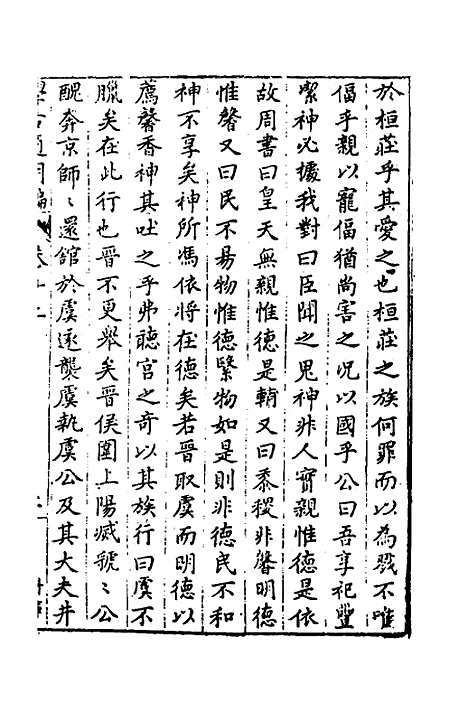 於桓莊乎其愛之也桓莊之族何罪而以為戮不唯
偪乎親以寵偪猶尚害之况以國乎公曰吾享祀豐
潔神必據我對曰臣聞之鬼神非人實親惟德是依
故周書曰皇天無親惟德是輔又曰黍稷非馨明德
惟馨又曰民不易物惟德繄物如是則非德民不和
神不享矣神所馮依將在德矣若晉取虞而明德以
薦馨香神其吐之乎弗聽宫之奇以其族行曰虞不
臘矣在此行也晉不更舉矣晉侯圍上陽滅虢〻公
醜奔京師〻還舘於虞遂襲虞執虞公及其大夫井